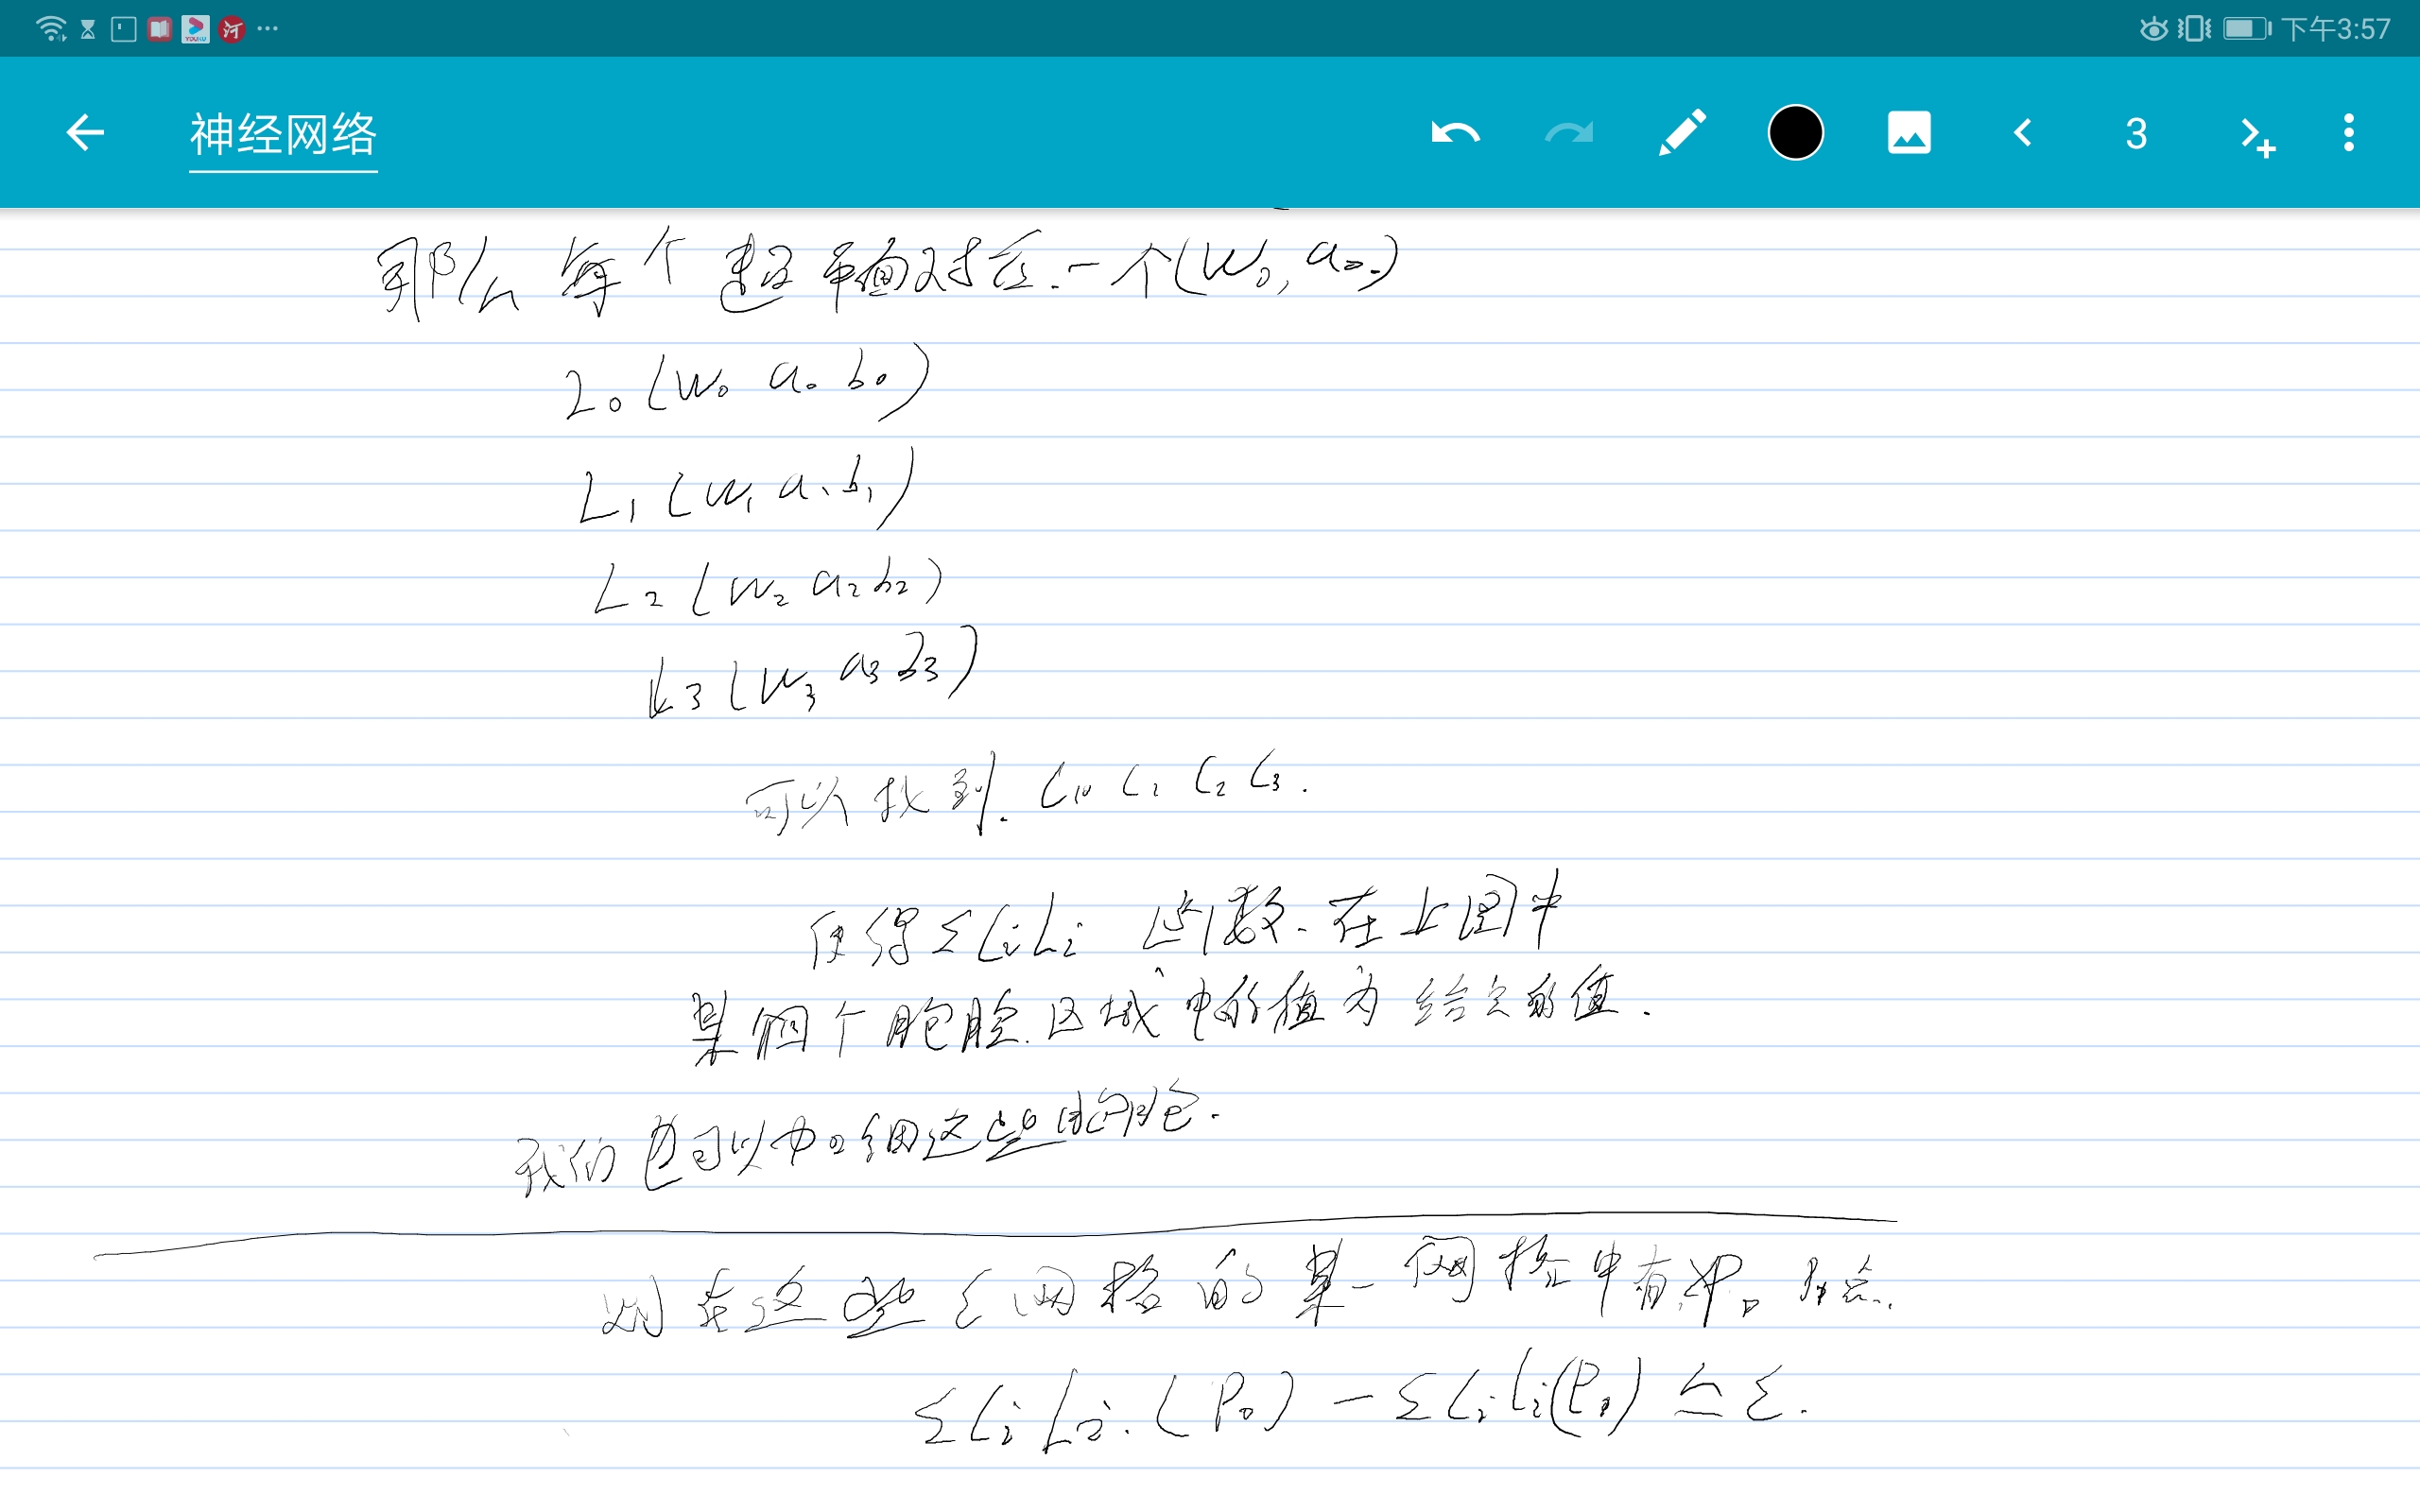 下午3:57
神经网络
3
那么每个超平面对应一个(W₀, a₀.)
L₀(W₀ a₀ b₀)
L₁(W₁ a₁ b₁)
L₂(W₂ a₂ b₂)
L₃(W₃ a₃ b₃)
可以找到. C₀ C₁ C₂ C₃.
使得Σ Cᵢ Lᵢ 函数.在上图中
某个胞腔.区域中的值为给定的值.
我们也可以加细这些胞腔.
则在这些 网格的某一 网格中有
ΣCᵢLᵢ.(P₀) - ΣCᵢLᵢ(P₁) ≤ ε.